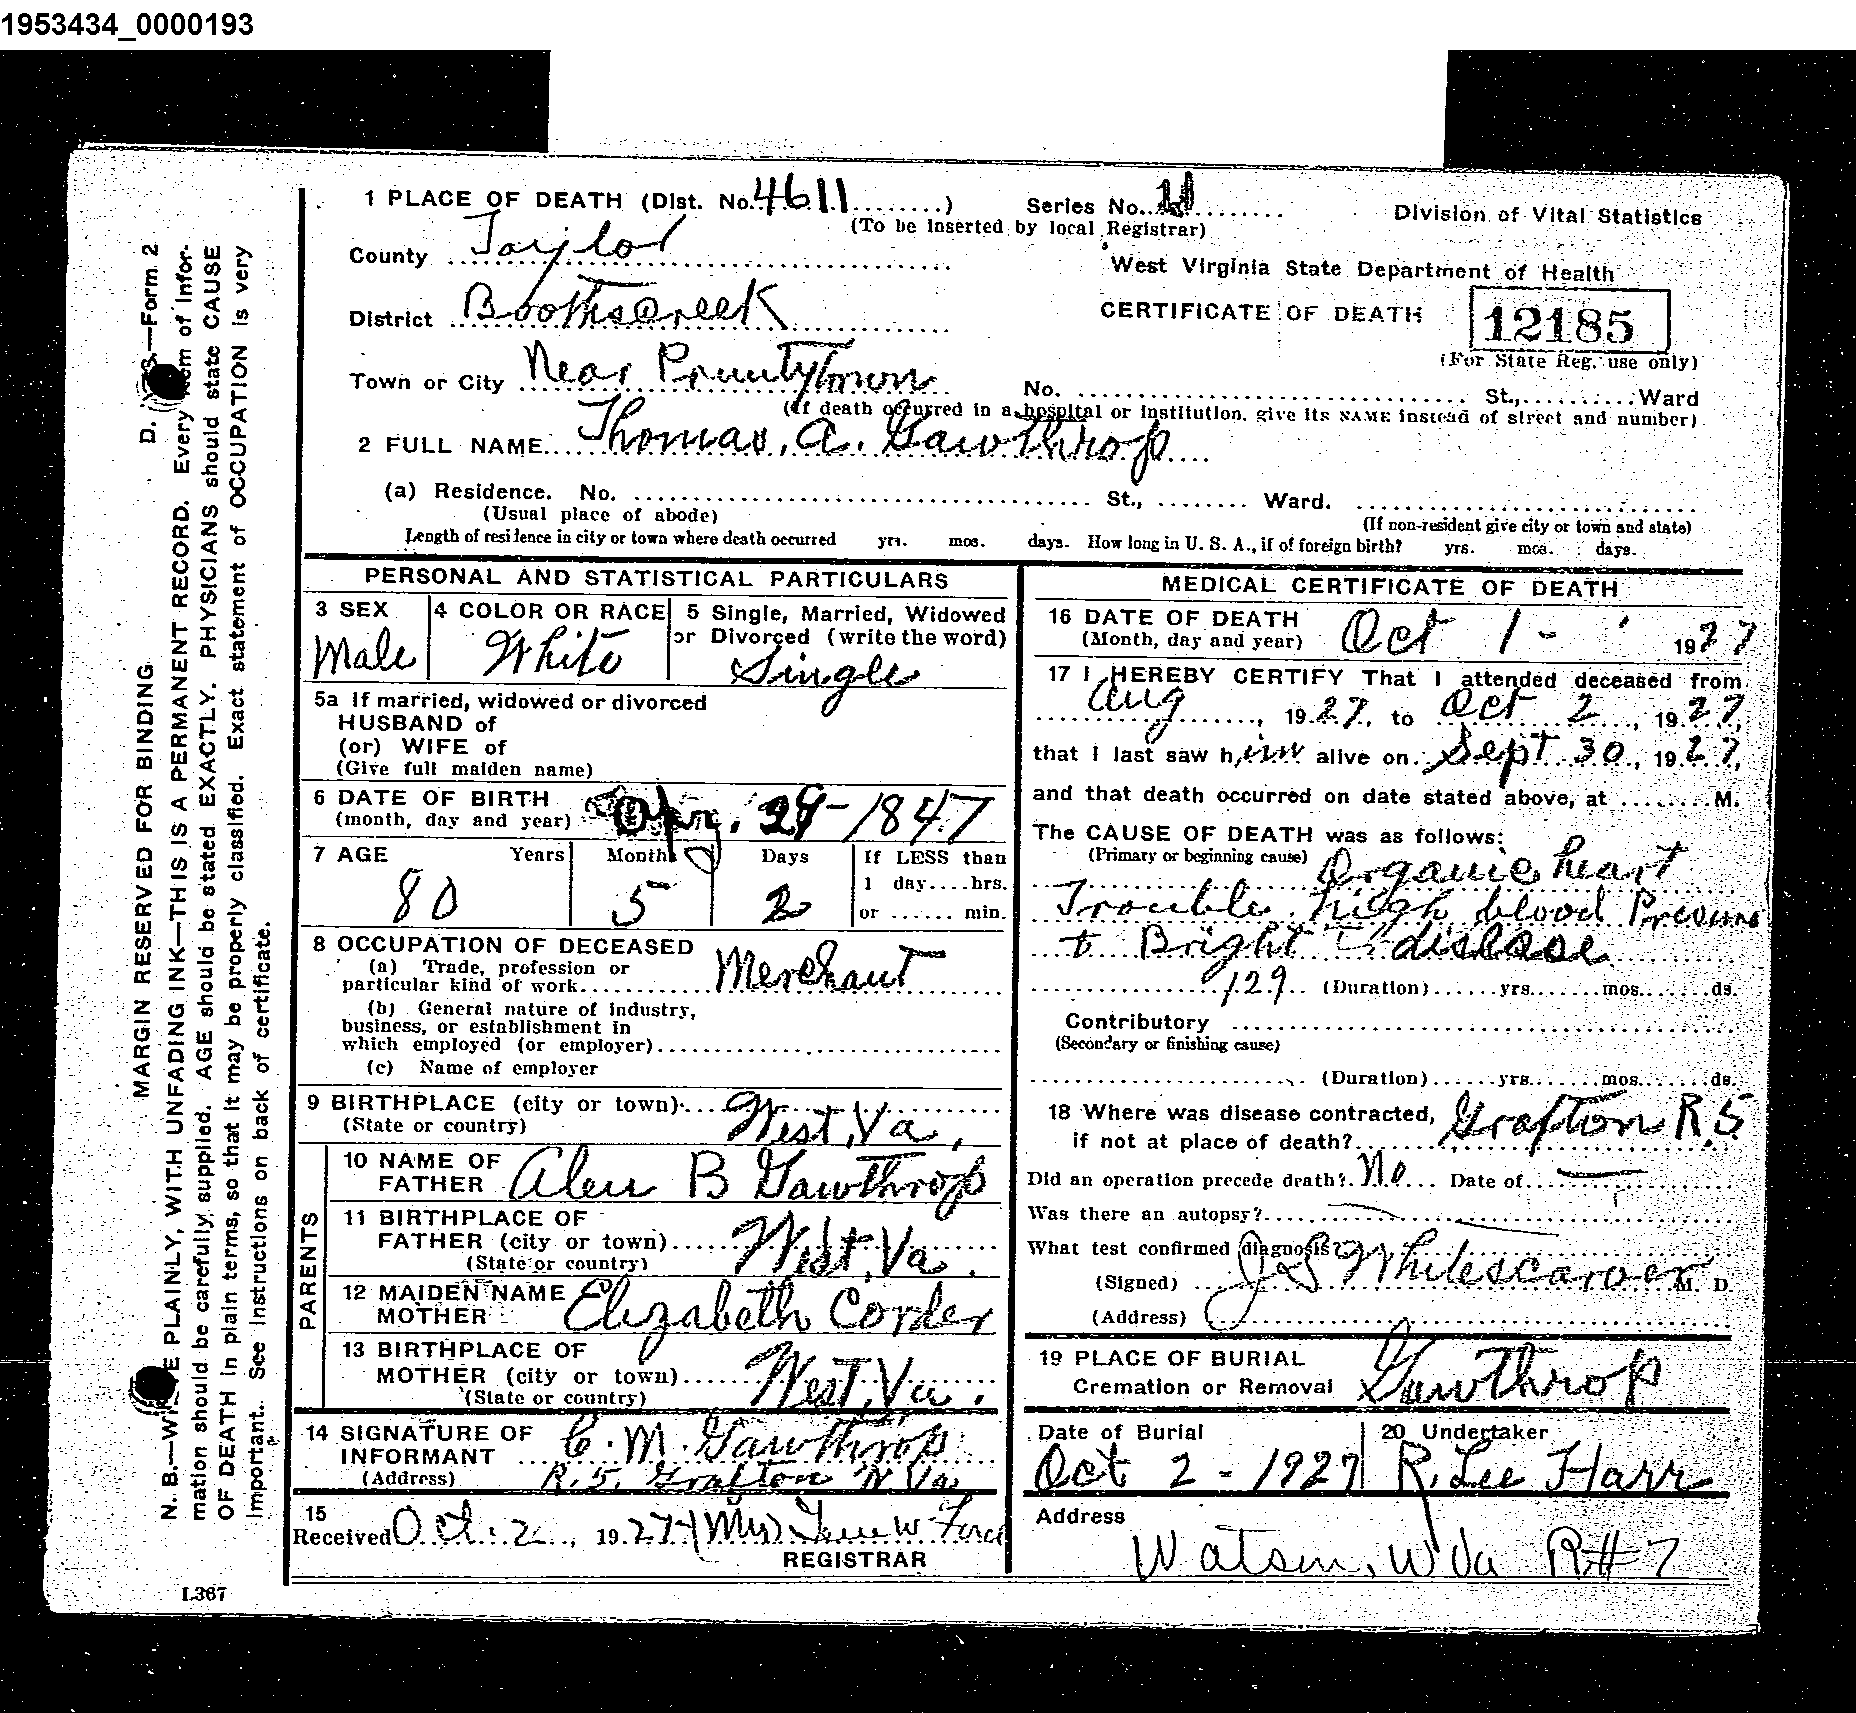 1953434_0000193
1 PLACE OF DEATH (Dist. No. 4611 ) Series No.
(To be inserted by local Registrar)
Division of Vital Statistics
County Taylor
West Virginia State Department of Health
District Boothscreek
CERTIFICATE OF DEATH 12185
(For State Reg. use only)
Town or City Near Pruntytown No. St., Ward
(If death occurred in a hospital or institution, give its NAME instead of street and number)
2 FULL NAME Thomas. A. Gawthrop
(a) Residence. No. St., Ward.
(Usual place of abode) (If non-resident give city or town and state)
Length of residence in city or town where death occurred yrs. mos. days. How long in U. S. A., if of foreign birth? yrs. mos. days.
PERSONAL AND STATISTICAL PARTICULARS
3 SEX 4 COLOR OR RACE 5 Single, Married, Widowed
or Divorced (write the word)
Male White Single
5a If married, widowed or divorced
HUSBAND of
(or) WIFE of
(Give full maiden name)
6 DATE OF BIRTH
(month, day and year) Apr. 29-1847
7 AGE Years Months Days If LESS than
1 day....hrs.
or ...... min.
80 5 2
8 OCCUPATION OF DECEASED
(a) Trade, profession or
particular kind of work Merchant
(b) General nature of industry,
business, or establishment in
which employed (or employer)
(c) Name of employer
9 BIRTHPLACE (city or town)
(State or country) West, Va,
PARENTS
10 NAME OF
FATHER Alen B Gawthrop
11 BIRTHPLACE OF
FATHER (city or town)
(State or country) West, Va.
12 MAIDEN NAME OF
MOTHER Elizabeth Corder
13 BIRTHPLACE OF
MOTHER (city or town)
(State or country) West, Va.
14 SIGNATURE OF
INFORMANT C. M. Gawthrop
(Address) R. 5. Grafton W Va
15
Received Oct. 2, 1927 (Mrs)
REGISTRAR
MEDICAL CERTIFICATE OF DEATH
16 DATE OF DEATH
(Month, day and year) Oct 1- 1927
17 I HEREBY CERTIFY That I attended deceased from
Aug, 1927, to Oct 2, 1927,
that I last saw him alive on Sept 30, 1927,
and that death occurred on date stated above, at ........M.
The CAUSE OF DEATH was as follows:
(Primary or beginning cause) Organic heart
Trouble high blood Pressure
+ Bright disease
129 (Duration)......yrs.......mos.......ds.
Contributory
(Secondary or finishing cause)
(Duration)......yrs.......mos.......ds.
18 Where was disease contracted,
if not at place of death? Grafton R.5.
Did an operation precede death? No Date of
Was there an autopsy?
What test confirmed diagnosis?
(Signed) J S Whitescarver M. D.
(Address)
19 PLACE OF BURIAL
Cremation or Removal Gawthrop
Date of Burial 20 Undertaker
Oct 2-1927 R. Lee Harr
Address
Watson, W Va R#7
MARGIN RESERVED FOR BINDING D. —Form 2
N. B.—WRITE PLAINLY, WITH UNFADING INK—THIS IS A PERMANENT RECORD. Every item of infor-
mation should be carefully supplied. AGE should be stated EXACTLY. PHYSICIANS should state CAUSE
OF DEATH in plain terms, so that it may be properly classified. Exact statement of OCCUPATION is very
important. See instructions on back of certificate.
L367